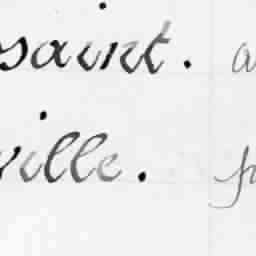 saint. a
ville. f